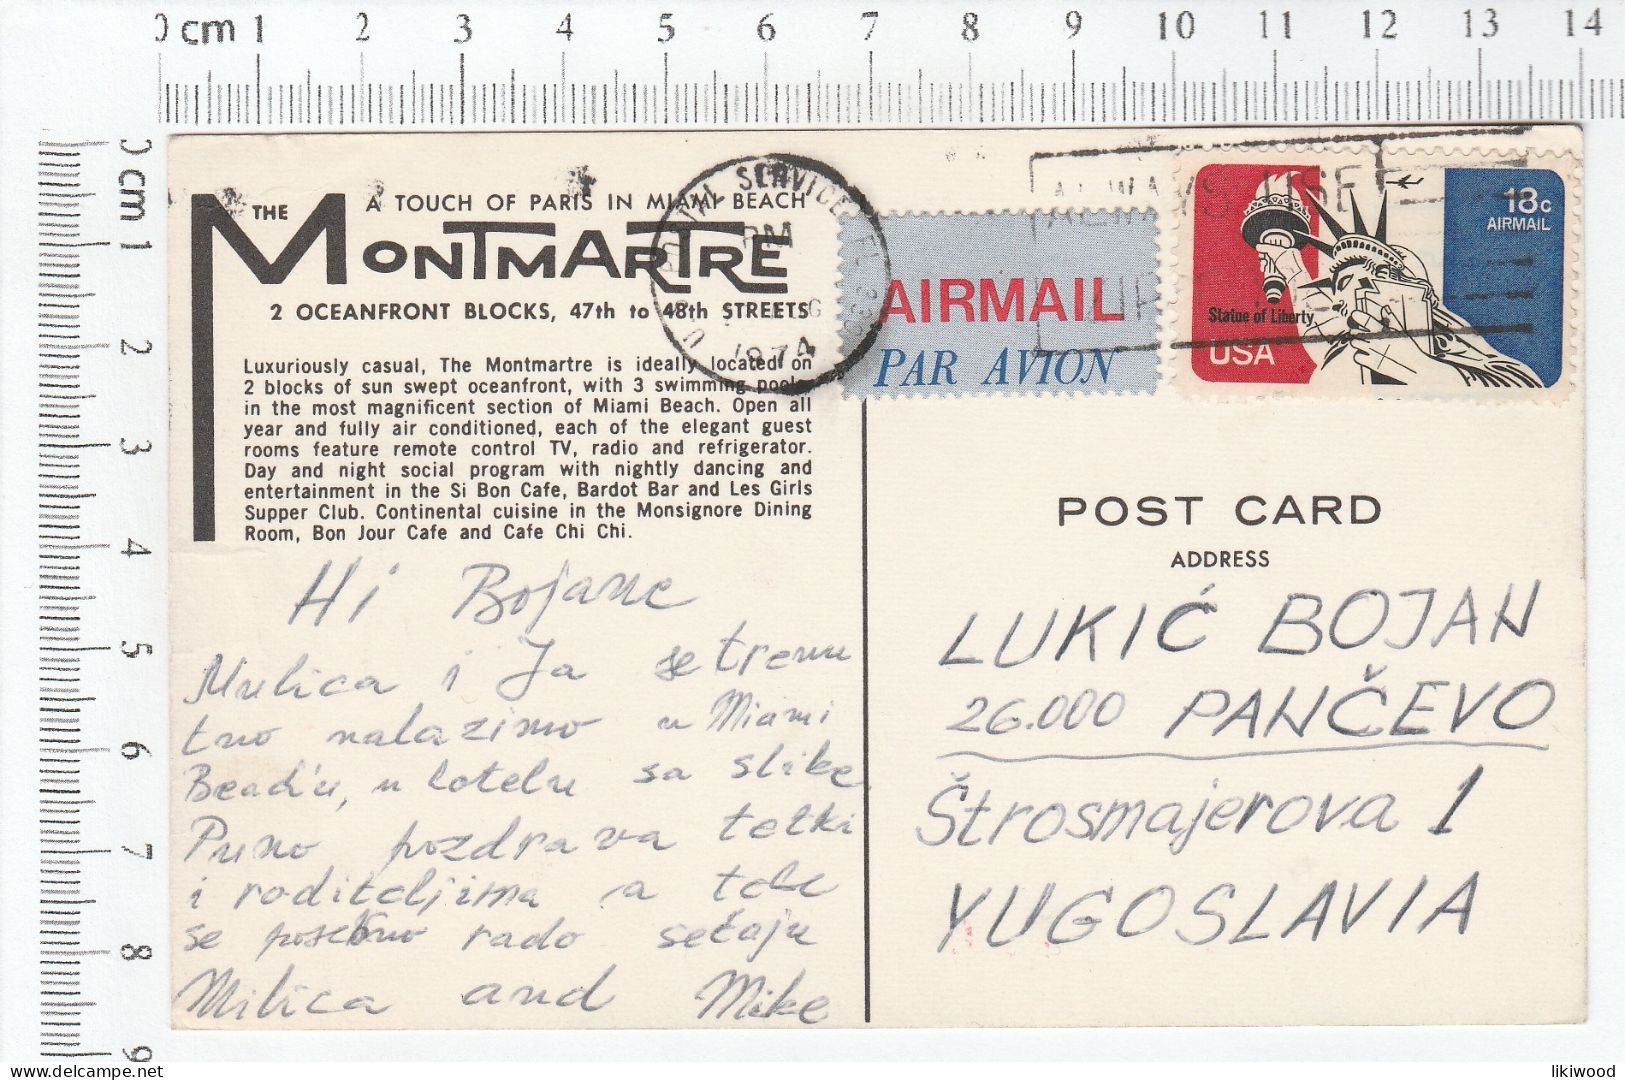 0 cm 1 2 3 4 5 6 7 8 9 10 11 12 13 14
0 cm 1 2 3 4 5 6 7 8 9
A TOUCH OF PARIS IN MIAMI BEACH
THE MONTMARTRE
2 OCEANFRONT BLOCKS, 47th to 48th STREETS
Luxuriously casual, The Montmartre is ideally located on
2 blocks of sun swept oceanfront, with 3 swimming pools
in the most magnificent section of Miami Beach. Open all
year and fully air conditioned, each of the elegant guest
rooms feature remote control TV, radio and refrigerator.
Day and night social program with nightly dancing and
entertainment in the Si Bon Cafe, Bardot Bar and Les Girls
Supper Club. Continental cuisine in the Monsignore Dining
Room, Bon Jour Cafe and Cafe Chi Chi.
Hi Bojane
Milica i Ja se trenu
tno nalazimo u Miami
Beach'u, u hotelu sa slike
Puno pozdrava tetki
i roditeljima a tebe
se posebno rado sećaju
Milica and Mike
U.S. POSTAL SERVICE FL
PM
1974
AIRMAIL
PAR AVION
ALWAYS USE
ZIP
18c
AIRMAIL
Statue of Liberty
USA
POST CARD
ADDRESS
LUKIĆ BOJAN
26.000 PANČEVO
Štrosmajerova 1
YUGOSLAVIA
likiwood